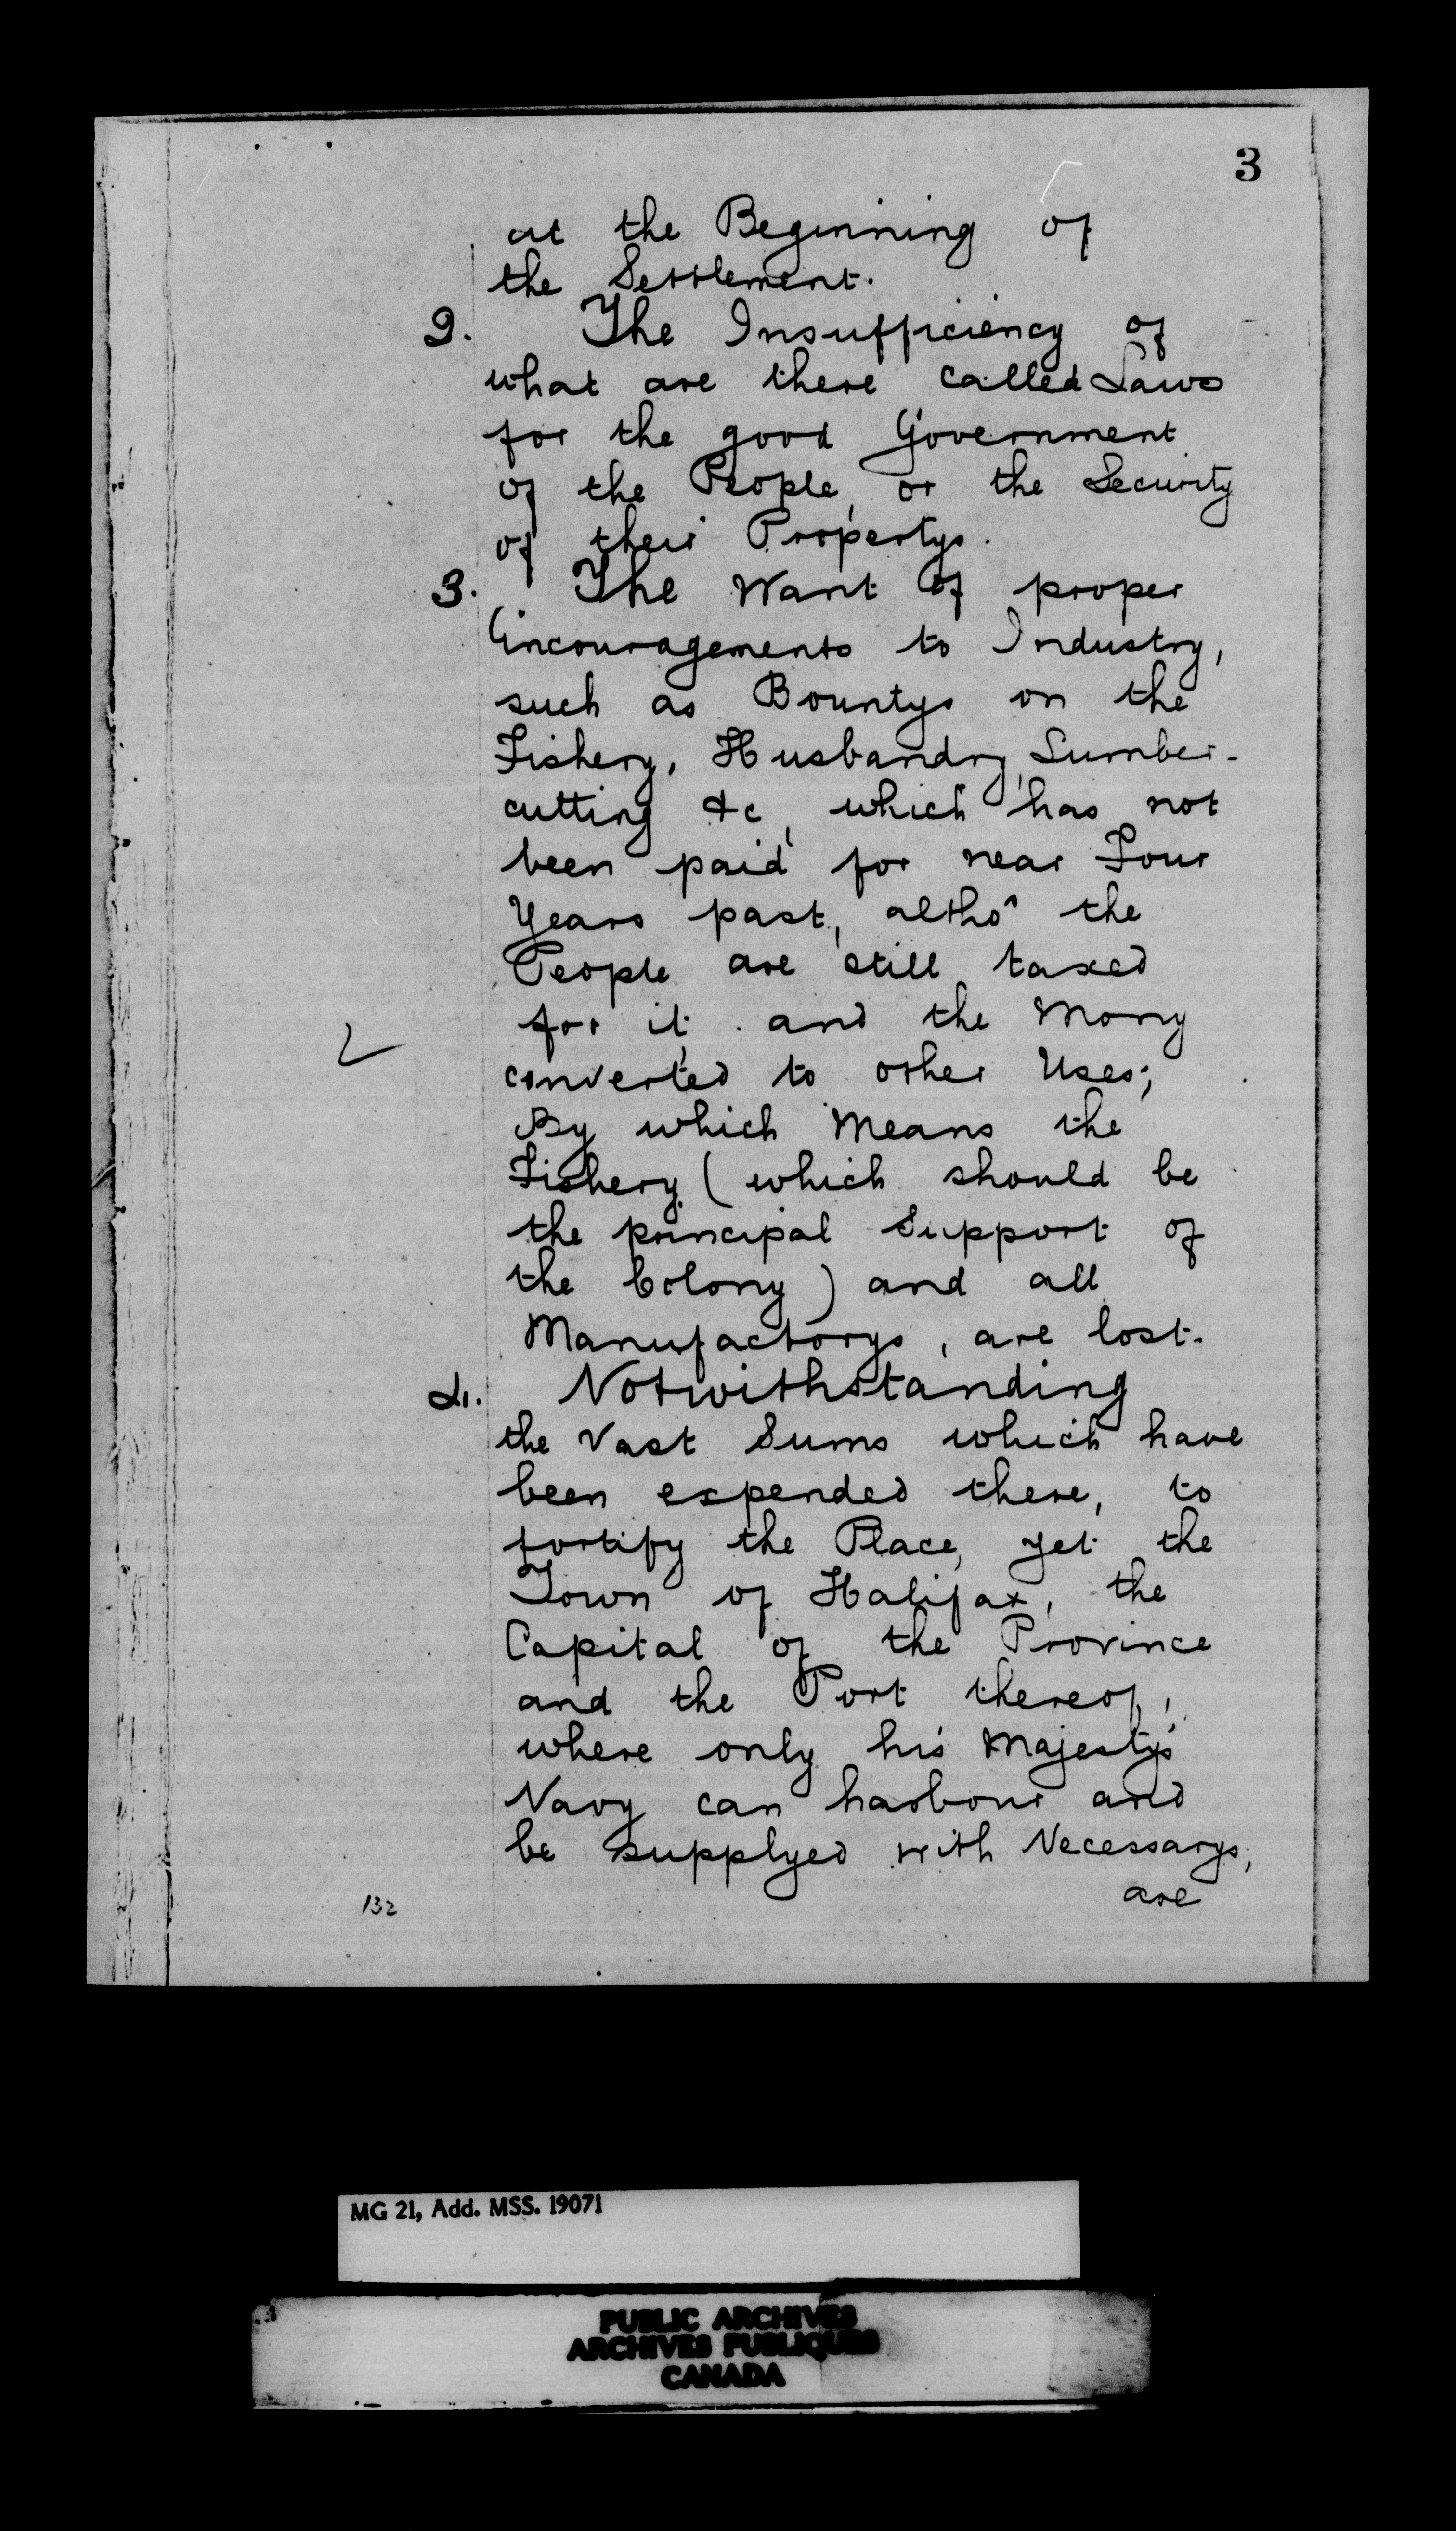 3
at the Beginning of
the Settlement.
2. The Insufficiency of
what are there called Laws
for the good Government
of the People, or the Security
of their Propertys.
3. The Want of proper
Encouragements to Industry,
such as Bountys on the
Fishery, Husbandry, Lumber-
cutting &c, which has not
been paid for near Four
Years past, altho' the
People are still taxed
for it, and the Mony
converted to other Uses;
By which Means the
Fishery (which should be
the principal Support of
the Colony) and all
Manufactorys, are lost.
4. Notwithstanding
the Vast Sums which have
been expended there, to
fortify the Place, yet the
Town of Halifax, the
Capital of the Province
and the Port thereof,
where only his Majesty's
Navy can harbour and
be supplyed with Necessarys,
are
132
MG 21, Add. MSS. 19071
PUBLIC ARCHIVES
ARCHIVES PUBLIQUES
CANADA